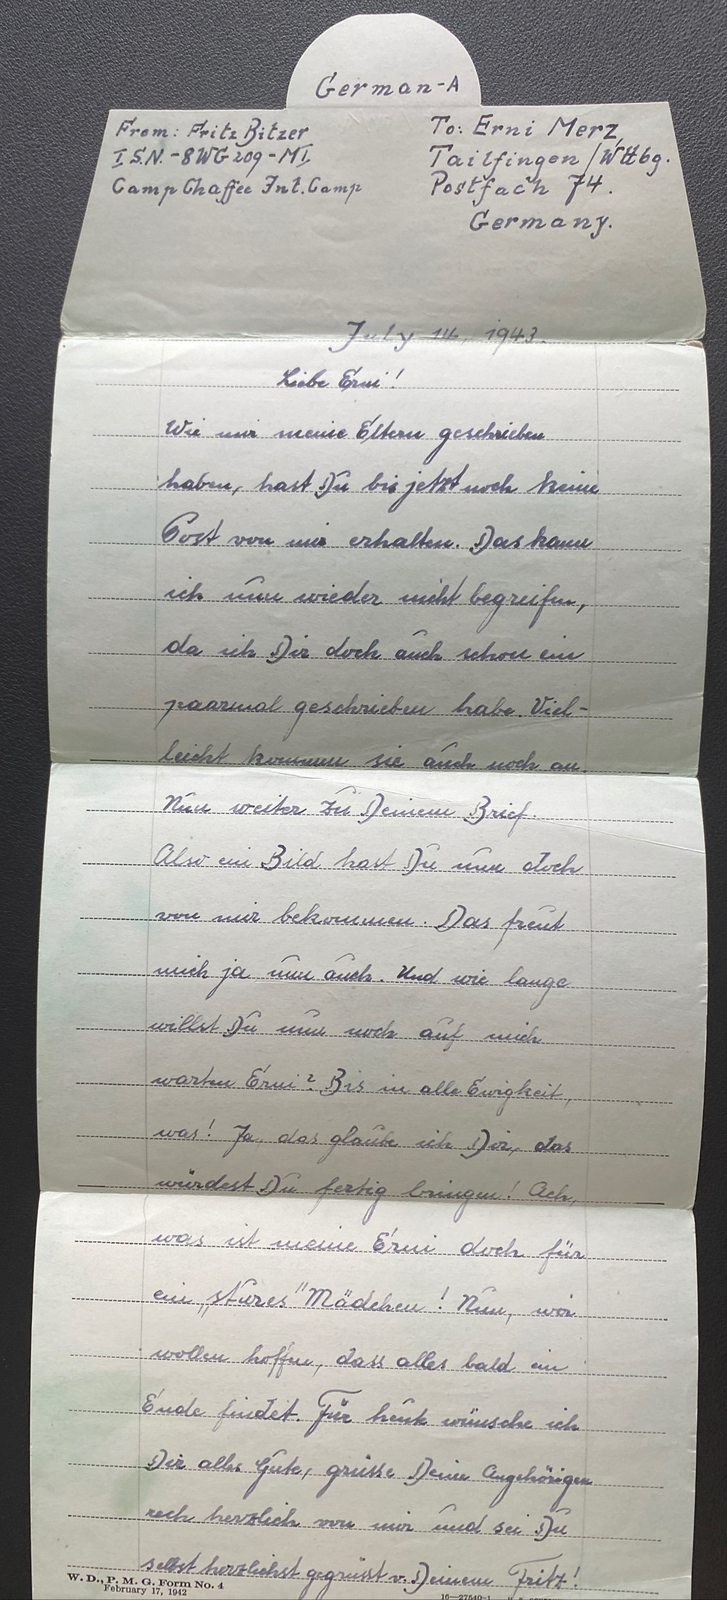 German-A
From: Fritz Bitzer
I.S.N.-8WG209-MI.
Camp Chaffee Int. Camp
To: Erni Merz
Tailfingen/Wttbg.
Postfach 74.
Germany.
July 14, 1943.
Liebe Erni!
Wie mir meine Eltern geschrieben
haben, hast Du bis jetzt noch keine
Post von mir erhalten. Das kann
ich nun wieder nicht begreifen,
da ich Dir doch auch schon ein
paarmal geschrieben habe. Viel-
leicht kommen sie auch noch an.
Nun weiter zu Deinem Brief.
Also ein Bild hast Du nun doch
von mir bekommen. Das freut
mich ja nun auch. Und wie lange
willst Du nun noch auf mich
warten Erni? Bis in alle Ewigkeit,
was! Ja, das glaube ich Dir, das
würdest Du fertig bringen! Ach,
was ist meine Erni doch für
ein „stures" Mädchen! Nun, wir
wollen hoffen, dass alles bald ein
Ende findet. Für heut wünsche ich
Dir alles Gute, grüsse Deine Angehörigen
rech herzlich von mir und sei Du
selbst herzlichst gegrüsst v. Deinem Fritz!
W. D., P. M. G. Form No. 4
February 17, 1942
16—27640-1